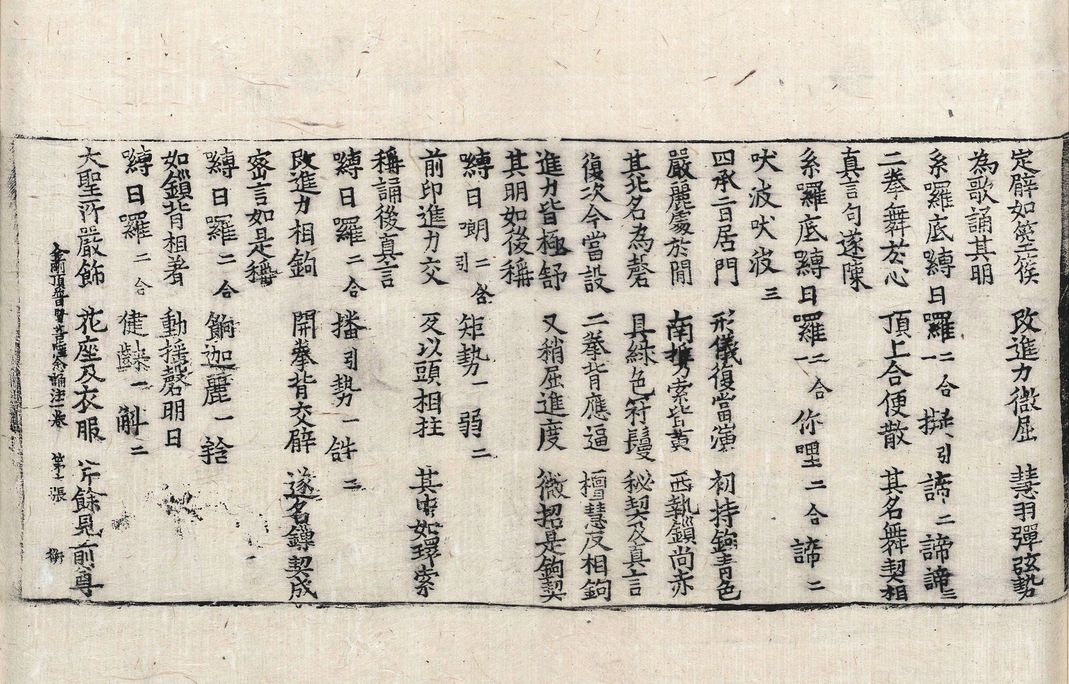 定臂如箜篌 改進力微屈 慧羽彈弦勢
為歌誦其明
系囉底嚩日囉二合一擬引諦二諦諦三
二拳舞於心 頂上合便散 其名舞契相
真言句遂陳
系囉底嚩日囉二合一你哩二合諦二
吠波吠波三
四承旨居門 形儀復當演 初持鉤青色
嚴麗處於間 南揽索皆黃 西執鏁尚赤
其北名為磬 具綠色符鬘 秘契及真言
復次今當設 二拳背應逼 檀慧反相鉤
進力皆極舒 又稍屈進度 微招是鉤契
其明如後稱
嚩日𠺁二合引矩勢一弱二
前印進力交 反以頭相拄 其中如環索
稱誦後真言
嚩日囉二合播引勢一𤙖二
改進力相鉤 開拳背交臂 遂名鏁契成
密言如是稱
嚩日囉二合餉迦麗一𨋢
如鏁背相著 動搖磬明曰
嚩日囉二合健𪘨一斛二
大聖所嚴飾 花座及衣服 并餘見前尊
金剛頂普賢菩薩念誦法一卷 第十一張 衡